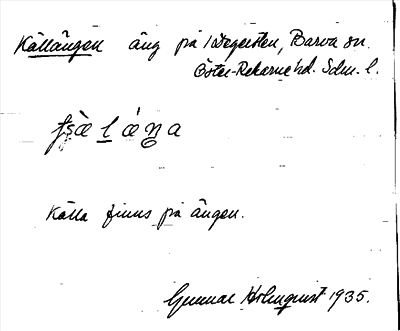 Källängen äng på Wegersten, Barva sn.
Öster-Rekarne hd. Sdm. l.
Källa finns på ängen.
Gunnar Holmquist 1935.